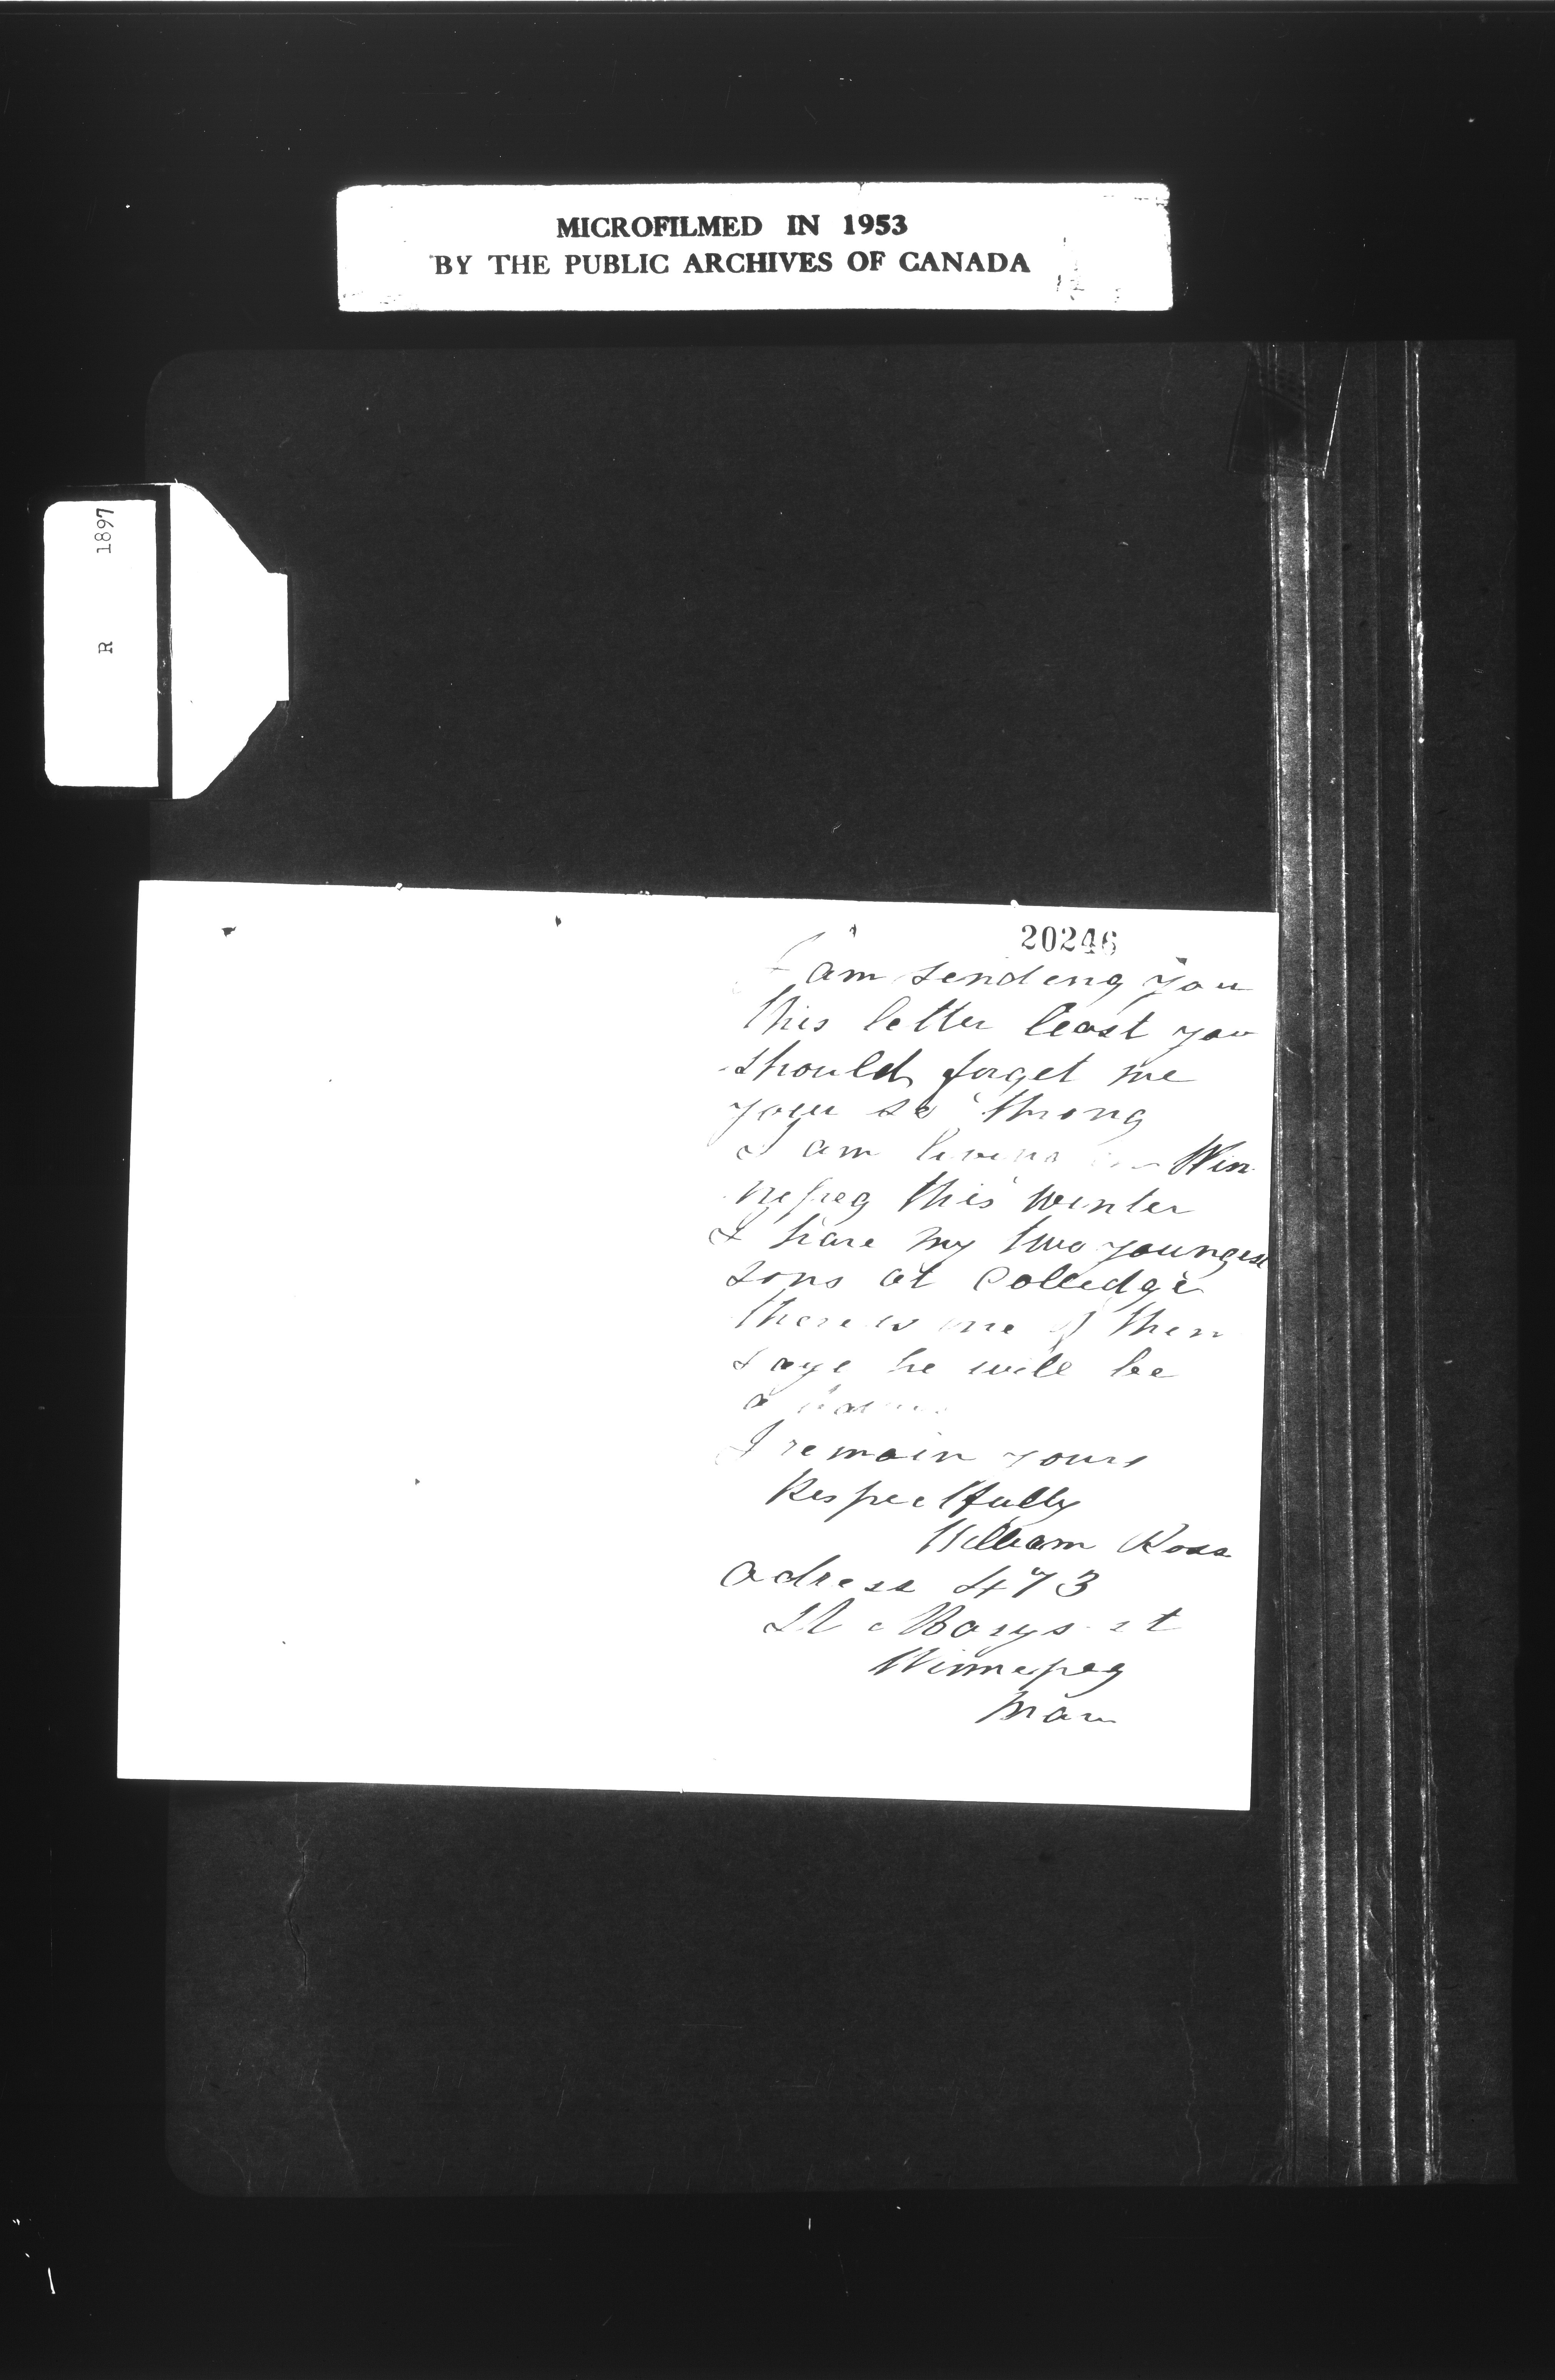 MICROFILMED IN 1953
BY THE PUBLIC ARCHIVES OF CANADA
R 1897
20246
I am sendeng you
this letter least you
should forget me
your so throng
I am liveng in Win
nepeg this winter
I have my two youngest
sons at Colledge
there is one of them
says he will be
a
I remain yours
Respectfully
William Ross
adress 473
St Marys st
Winnepeg
Man